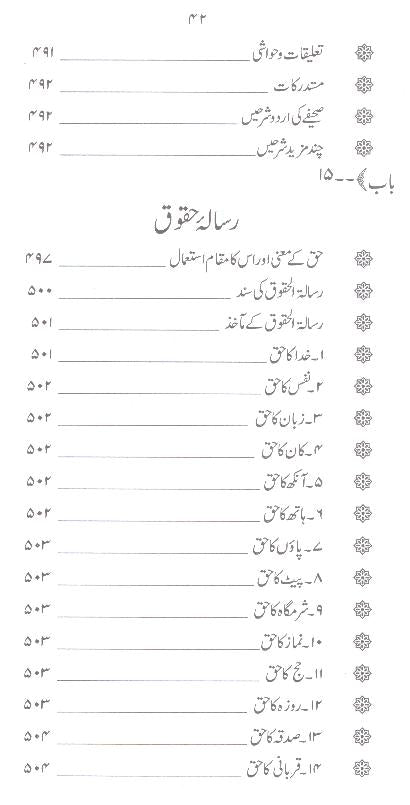 ۴۲
تعلیقات و حواشی ۴۹۱
مستدرکات ۴۹۲
صحیفے کی اردو شرحیں ۴۹۲
چند مزید شرحیں ۴۹۲
باب ﴾۔۔۱۵
رسالۂ حقوق
حق کے معنی اور اس کا مقام استعمال ۴۹۷
رسالۃ الحقوق کی سند ۵۰۰
رسالۃ الحقوق کے مآخذ ۵۰۱
۱۔ خدا کا حق ۵۰۱
۲۔ نفس کا حق ۵۰۲
۳۔ زبان کا حق ۵۰۲
۴۔ کان کا حق ۵۰۲
۵۔ آنکھ کا حق ۵۰۲
۶۔ ہاتھ کا حق ۵۰۲
۷۔ پاؤں کا حق ۵۰۳
۸۔ پیٹ کا حق ۵۰۳
۹۔ شرمگاہ کا حق ۵۰۳
۱۰۔ نماز کا حق ۵۰۳
۱۱۔ حج کا حق ۵۰۳
۱۲۔ روزہ کا حق ۵۰۳
۱۳۔ صدقہ کا حق ۵۰۴
۱۴۔ قربانی کا حق ۵۰۴